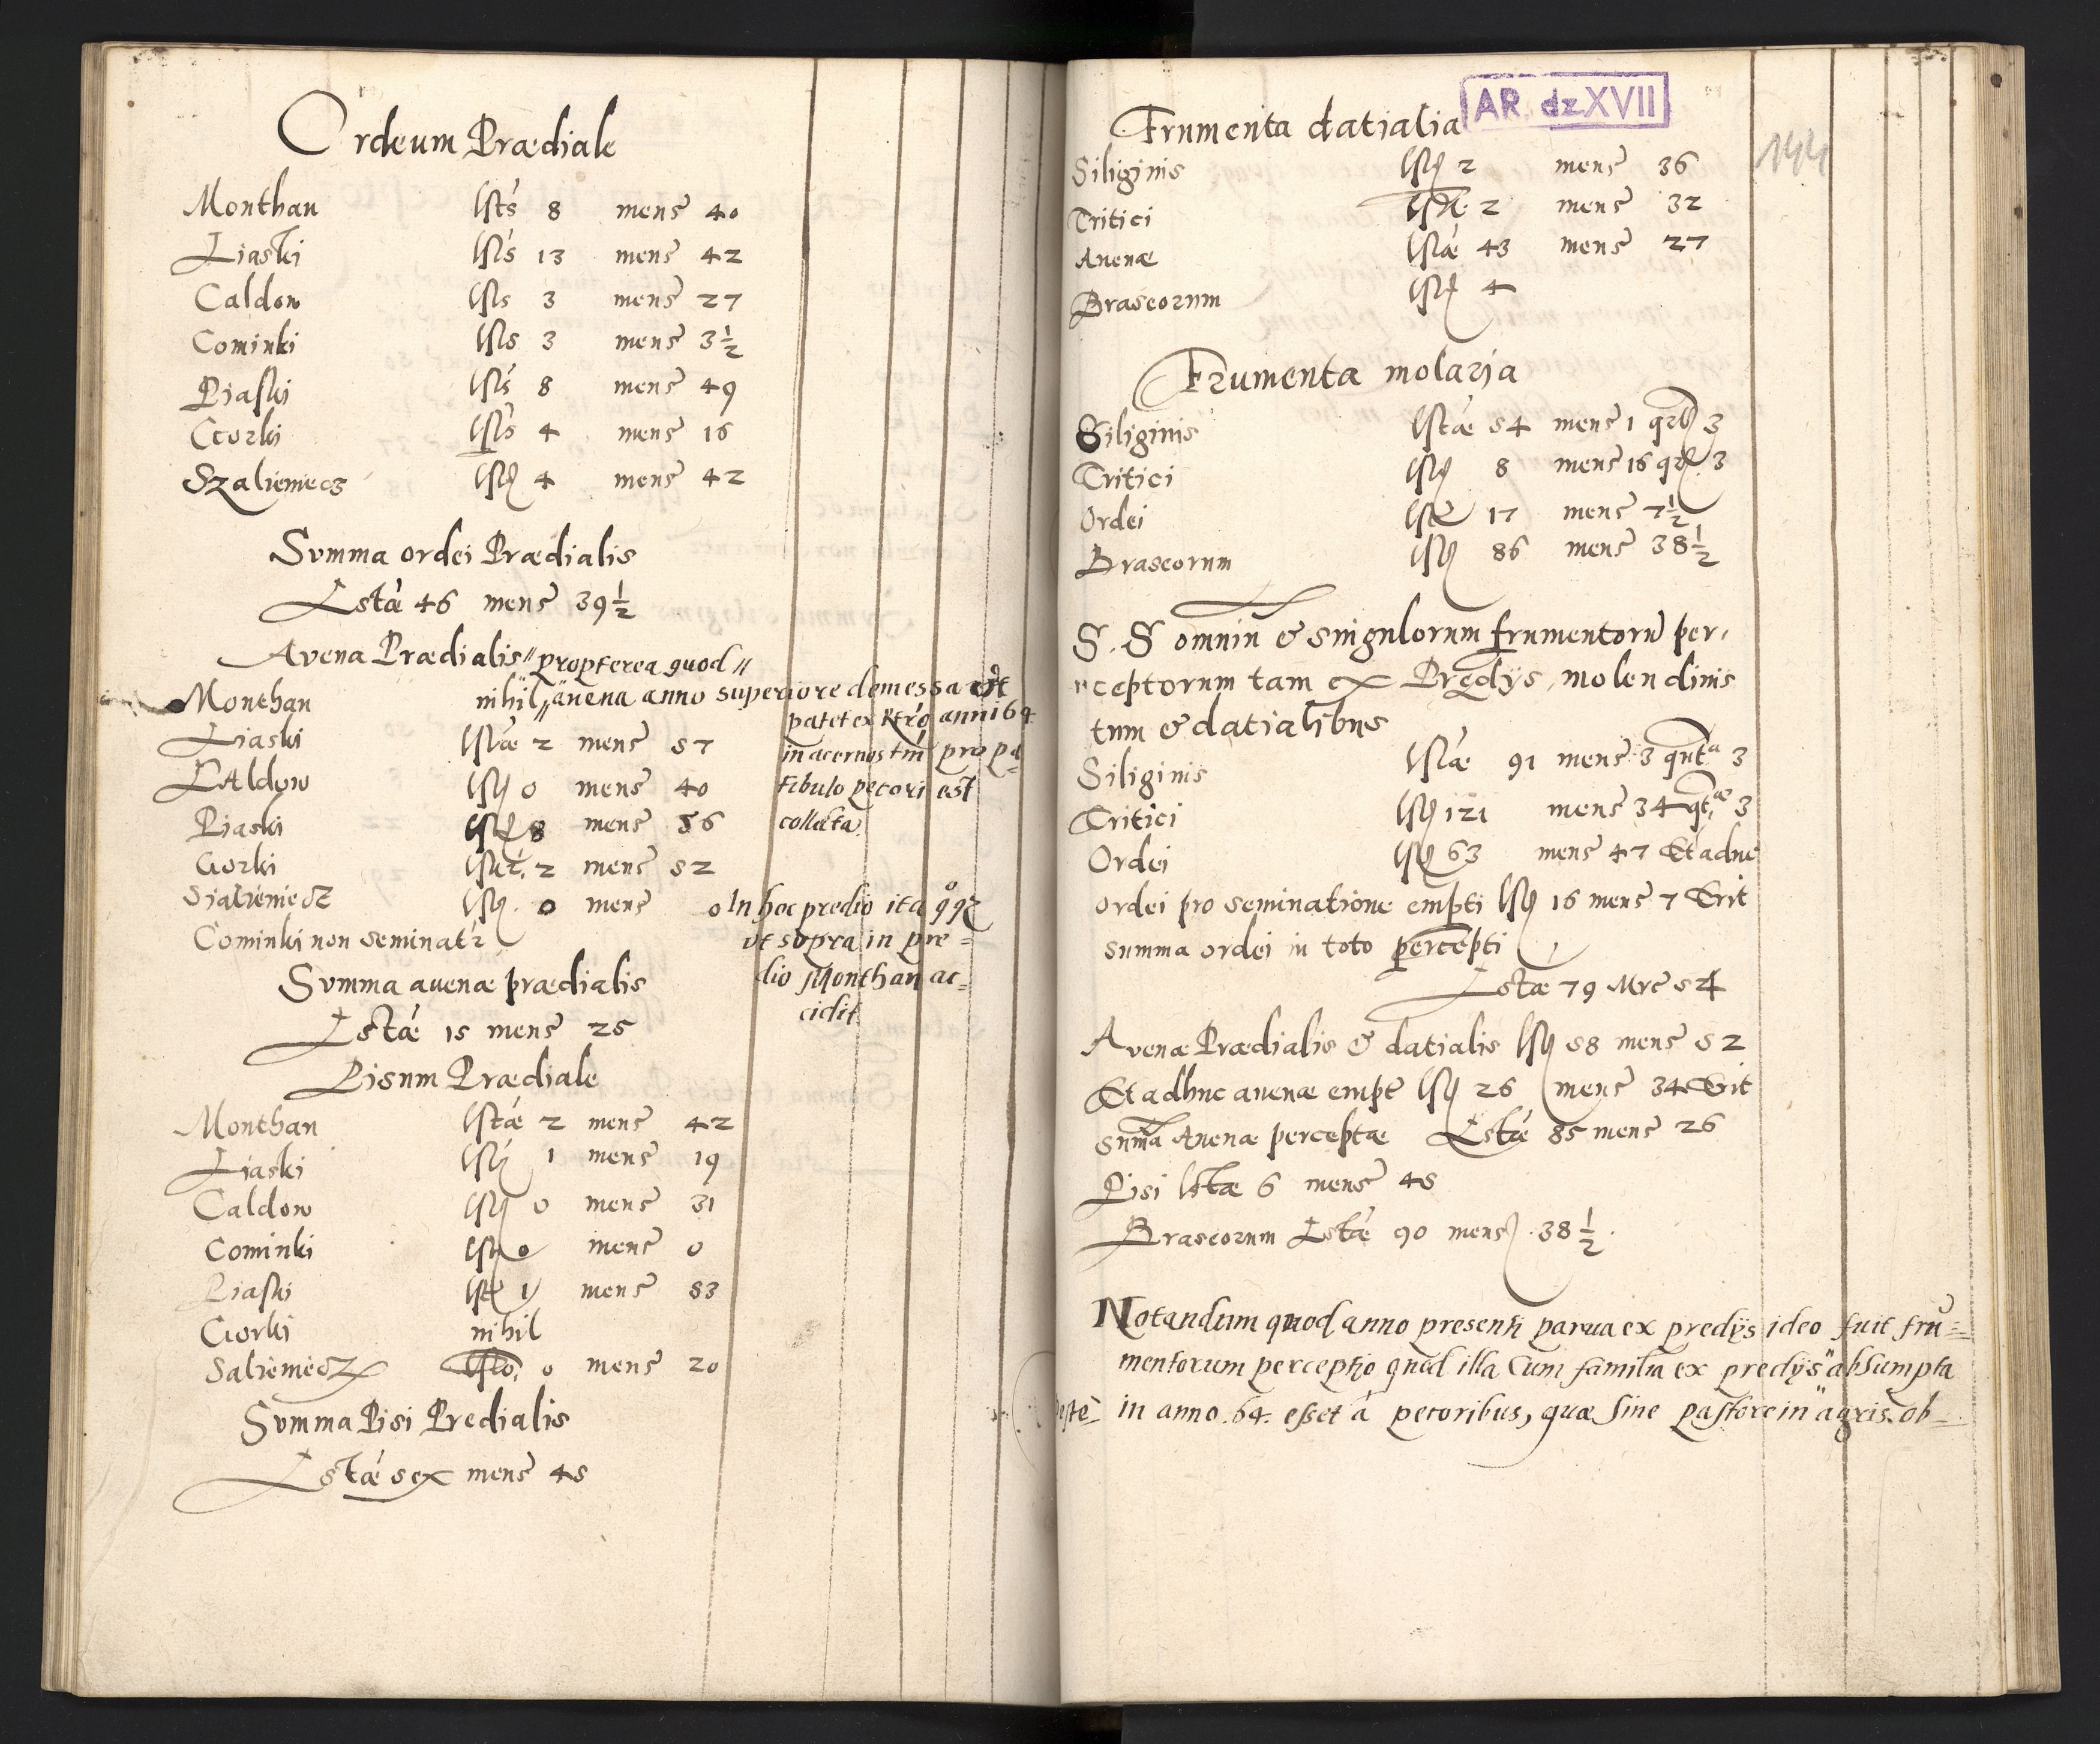 Ordeum Prædiale
Monthan lsts 8 mens 40
Liaski lsts 13 mens 42
Caldow lsts 3 mens 27
Cominki lsts 3 mens 3½
Piaski lsts 8 mens 49
Gorki lsts 4 mens 16
Szaliemiecz lst 4 mens 42
Svmma ordei Prædialis
Lstæ 46 mens 39½
Avena Prædialis // propterea quod //
Monthan nihil // auena anno superiore demessa est
patet ex rtro anni 64
in acernos tm pro pa=
tibulo pecori est
collecta.
Liaski lstæ 2 mens 57
CAldow lst 0 mens 40
Piaski lst 8 mens 56
Gorki lst 2 mens 52
Sialiemiecz lst 0 mens 0
In hoc predio ita
vt sopra in pre=
dio Monthan ac=
cidit
Cominki non seminatr
Svmma auenæ prædialis
Lstæ 15 mens 25
Pisum Prædiale
Monthan lstæ 2 mens 42
Liaski lst 1 mens 19
Caldow lst 0 mens 31
Cominki lst 0 mens 0
Piaski lst 1 mens 53
Gorki nihil
Saliemiecz lst 0 mens 20
Svmma Pisi Predialis
Lstæ sex mens 45
AR dz XVII
144
Frumenta datialia
Siliginis lst 2 mens 36
Tritici lst 2 mens 32
Auenæ lstæ 43 mens 27
Braseorum lst 4
Frumenta molaria
Siliginis lstæ 54 mens 1 qrt 3
Tritici lst 8 mens 16 qrt 3
Ordei lst 17 mens 7½
Braseorum lst 86 mens 38½
S. S omniu & singulorum frumentoru per,
ceptorum tam ex Predys, molendinis
tum & datialibus
Siliginis lstæ 91 mens 3 qrta 3
Tritici lst 121 mens 34 qtæ 3
Ordei lst 63 mens 47 Et adhuc
ordei pro seminatione empti lst 16 mens 7 Erit
summa ordei in toto percepti
Lstæ 79 Mrc 54
Avenæ Prædialis & datialis lst 58 mens 52
Et adhuc auenæ empte lst 26 mens 34 Erit
summa Auenæ perceptæ Lstæ 85 mens 26
Pisi lstæ 6 mens 45
Braseorum Lstæ 90 mens 38½
Notandum quod anno presenti parua ex predys ideo fuit fru=
mentorum perceptio quod illa Cum familia ex predys absumpta
in anno 64. esset a pecoribus, quæ sine pastore in agris ob=